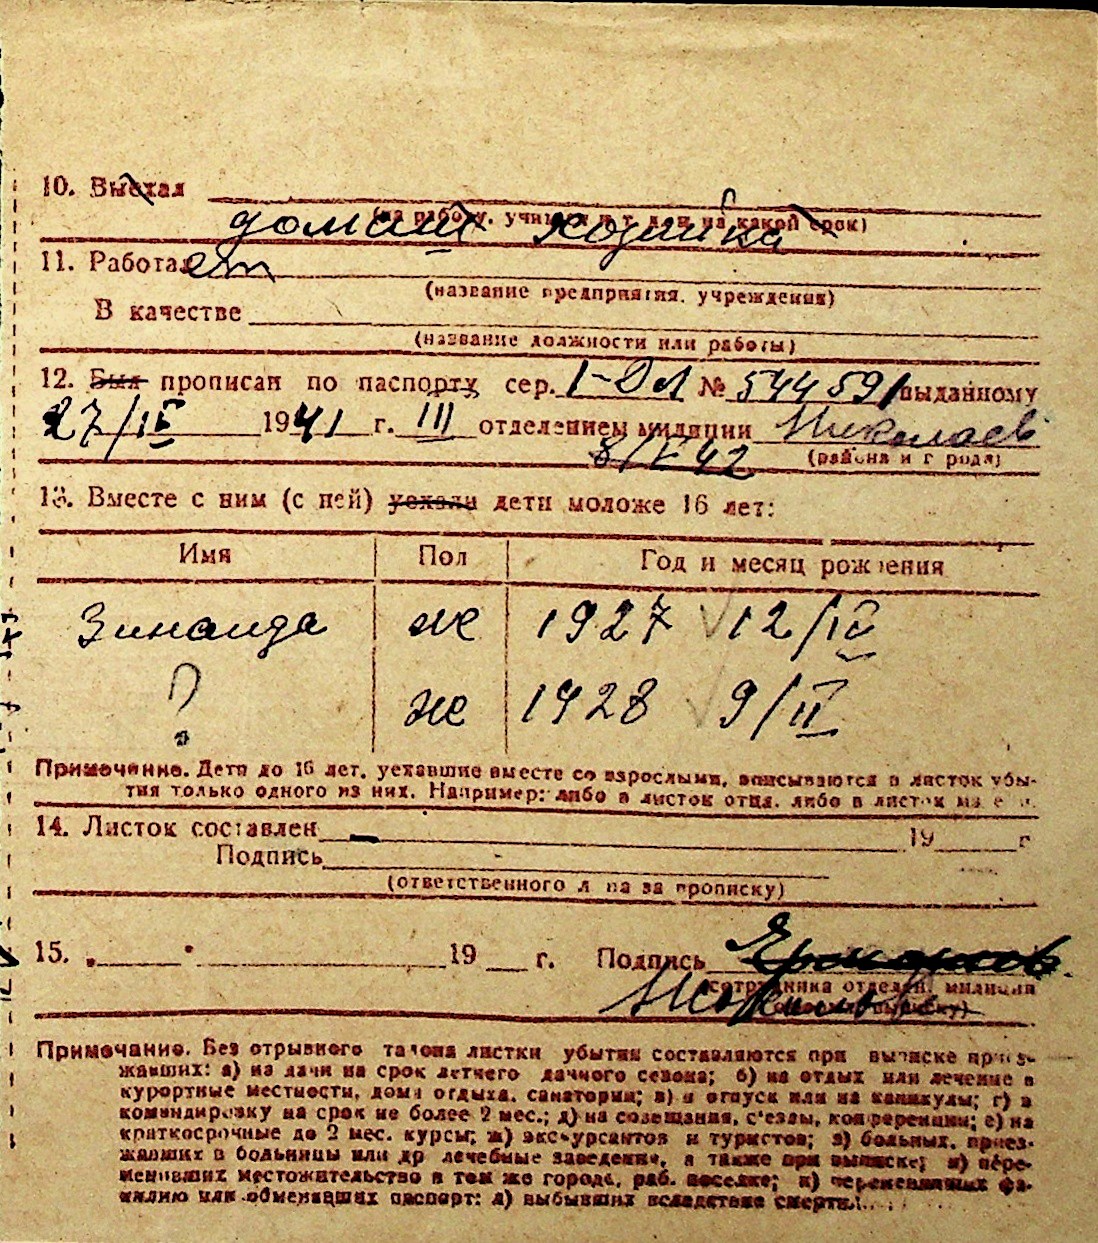 10. Выехал
(на работу, учиться и т. д. и на какой срок)
домаш хозяйка
11. Работает
(название предприятия, учреждения)
В качестве
(название должности или работы)
12. Был прописан по паспорту сер. 1-ОЛ № 544591 выданному
27/IV 1941 г. III отделением милиции Николаев
8/V 42 (района и города)
13. Вместе с ним (с ней) уехали дети моложе 16 лет:
Имя Пол Год и месяц рождения
Зинаида же 1927 12/IV
? же 1928 9/II
Примечание. Дети до 16 лет, уехавшие вместе со взрослыми, вписываются в листок убы-
тия только одного из них. Например: либо в листок отца, либо в листок матери.
14. Листок составлен 19 г
Подпись
(ответственного лица за прописку)
15. „ " 19 г. Подпись
сотрудника отделен. милиции
Примечание. Без отрывного талона листки убытия составляются при выписке приез-
жавших: а) на дачи на срок летнего дачного сезона; б) на отдых или лечение в
курортные местности, дома отдыха, санатории; в) в отпуск или на каникулы; г) в
командировку на срок не более 2 мес.; д) на совещания, с'езды, конференции; е) на
краткосрочные до 2 мес. курсы; ж) экскурсантов и туристов; з) больных, приез-
жавших в больницы или др лечебные заведения, а также при выписке; и) пере-
менивших местожительство в том же городе, раб. поселке; к) переменивших фа-
милию или обменявших паспорт; л) выбывших вследствие смерти.